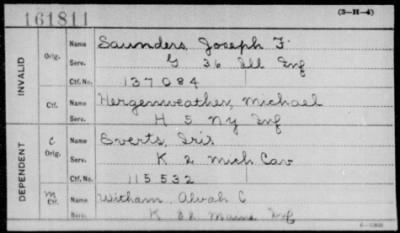 161811
(3-H-4)
INVALID
Orig. Name Saunders, Joseph F.
Serv. G 36 Ill Inf
Ctf. No. 137084
Ctf. Name Hergenweather, Michael
Serv. H 5 Ny Inf
DEPENDENT
C
Orig. Name Everts, Iris
Serv. K 2 Mich Cav
Ctf. No. 115532
M
Ctf. Name Witham Alvah C
Serv. K Maine Inf